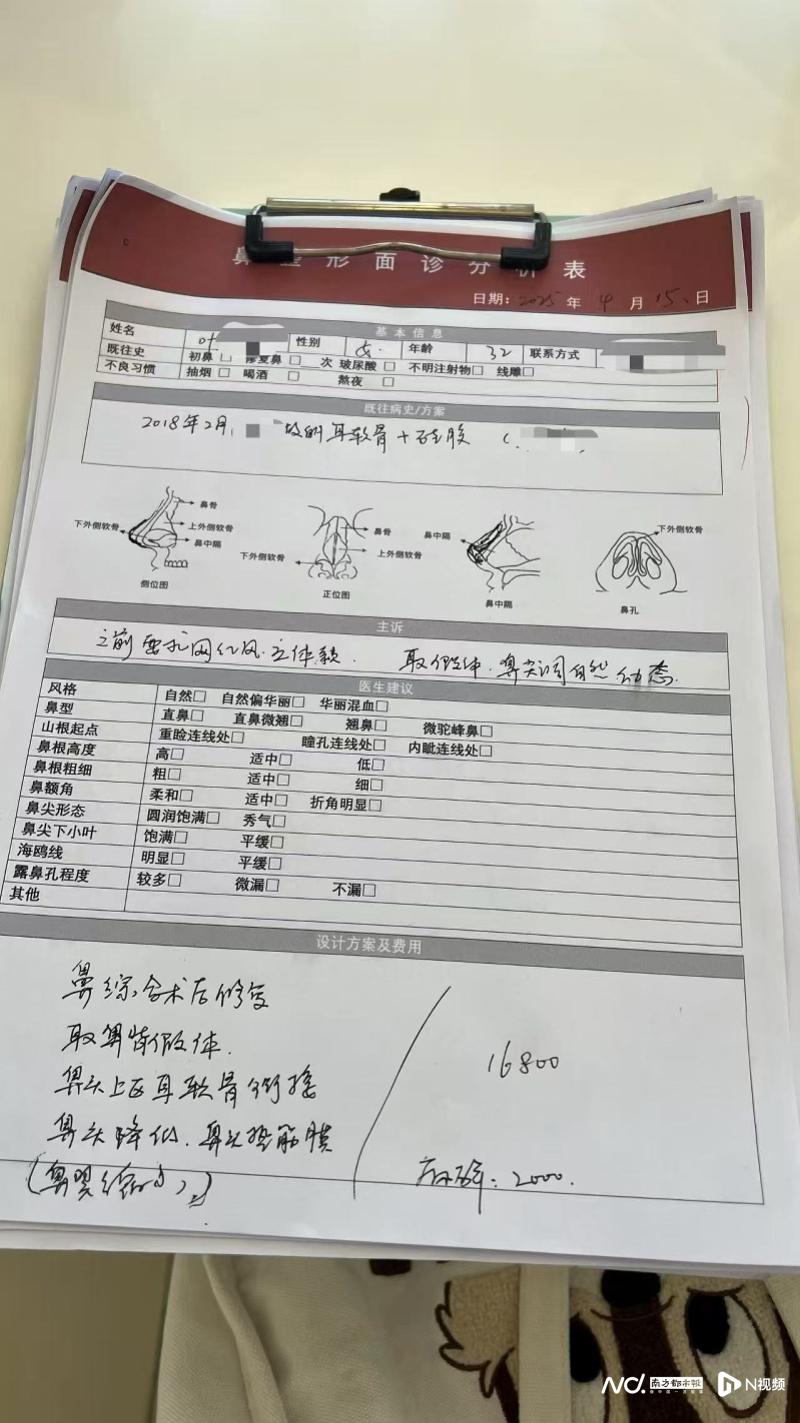 鼻整形面诊分析表
日期：2025年4月15日
基本信息
姓名 性别 女 年龄 32 联系方式
既往史 初鼻□ 修复鼻□ 次 玻尿酸□ 不明注射物□ 线雕□
不良习惯 抽烟□ 喝酒□ 熬夜□
既往病史/方案
2018年2月, 做的耳软骨+硅胶
鼻骨
下外侧软骨
上外侧软骨
鼻中隔
侧位图
鼻骨
下外侧软骨
上外侧软骨
正位图
鼻中隔
鼻中隔
下外侧软骨
鼻孔
主诉
之前 网红风.立体款. 取假体.鼻尖 自然 动态.
医生建议
风格 自然□ 自然偏华丽□ 华丽混血□
鼻型 直鼻□ 直鼻微翘□ 翘鼻□ 微驼峰鼻□
山根起点 重睑连线处□ 瞳孔连线处□ 内眦连线处□
鼻根高度 高□ 适中□ 低□
鼻根粗细 粗□ 适中□ 细□
鼻额角 柔和□ 适中□ 折角明显□
鼻尖形态 圆润饱满□ 秀气□
鼻尖下小叶 饱满□ 平缓□
海鸥线 明显□ 平缓□
露鼻孔程度 较多□ 微漏□ 不漏□
其他
设计方案及费用
鼻综合术后修复
取鼻背假体.
鼻头上区耳软骨衔接
鼻头降低.鼻头垫筋膜
(鼻翼缩小)
16800
2000.
南方都市报
N视频